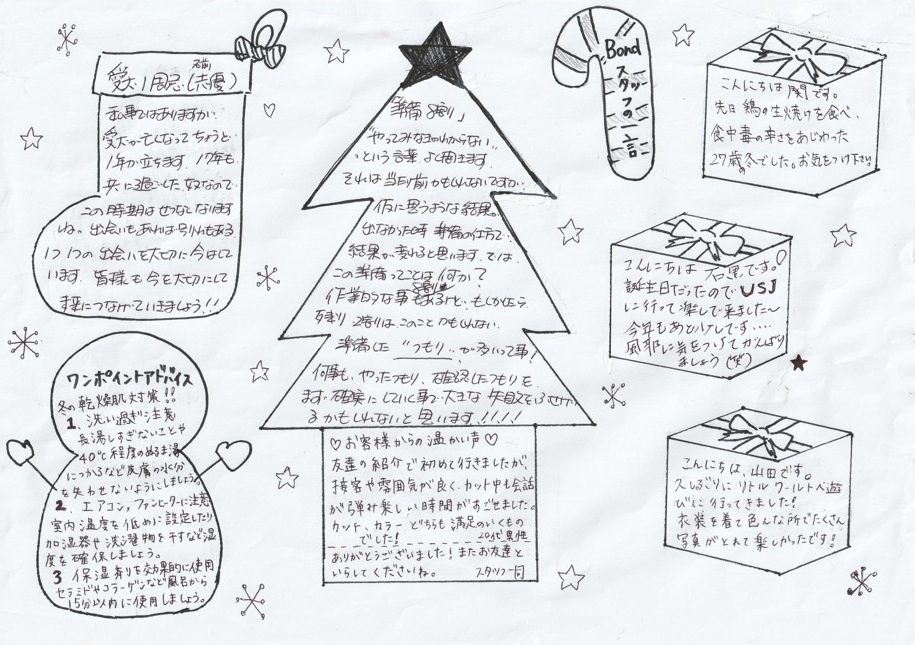 愛犬1周忌(志優)
名前
私事ではありますが、
愛犬が亡くなってちょうど
1年が立ちます。17年も
共に過ごした
この時期はせつなくなります
ね。出会いもあれば別れもある
1つ1つの出会いを大切に今
います。皆様も今を大切にして
未来につなげていきましょう!!
ワンポイントアドバイス
冬の乾燥肌対策!!
1、洗い過ぎ注意
長湯しすぎないことや
40℃程度のぬるま湯
につかるなど皮膚の水分
を失わせないようにしましょう。
2、エアコン,ファンヒーターに注意
室内温度を低めに設定したり
加湿器や洗濯物を干すなど湿
度を確保しましょう。
3 保湿剤を効果的に使用
セラミドやコラーゲンなど風呂から
15分以内に使用しましょう。
「準備8割」
"やってみなきゃわからない"
っという言葉 よく聞きます。
それは当り前かもしれないですが…
仮に思うような結果。
出なかった時 準備の仕方で
結果が変わると思います。では、
この準備ってことは何か?
作業的な事も8割あるけど、もしかしたら
残り 2割はこのことかもしれない。
準備した "つもり" が多いって事!
何事も、やったつもり、確認したつもりを
まず確実に
るかもしれないと思います!!!!
♡お客様からの温かい声♡
友達の紹介で初めて行きましたが、
接客や雰囲気が良く、カット中も会話
が弾み楽しい時間がすごせました。
カット、カラー どちらも満足のいくもの
でした! 20代男性
ありがとうございました!またお友達と
いらしてくださいね。 スタッフ一同
Bond
スタッフの一言
こんにちは 関です。
先日 鶏の生焼けを食べ、
食中毒の辛さをあじわった
27歳の冬でした。お気をつけ下さい。
こんにちは 石黒です。
誕生日だったので USJ
に行って楽しで来ました〜
今年もあと少しです....
風邪に気をつけてがんばり
ましょう(笑)
こんにちは、山田です。
久しぶりにリトルワールドへ遊
びに行ってきました!
衣装を着て色んな所でたくさん
写真がとれて楽しかったです!